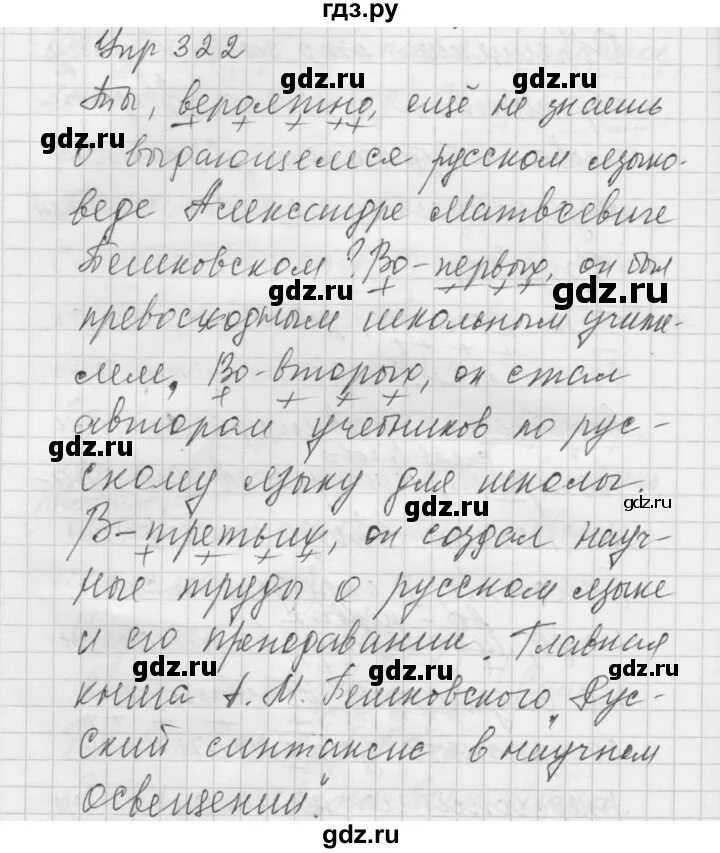 гдз.ру
Упр 322
gdz.ru
Ты, вероятно, ещё не знаешь
gdz.ru
gdz.ru
о выдающемся русском языко-
gdz.ru
веде Александре Матвеевиче
Пешковском? Во-первых, он был
gdz.ru
gdz.ru
превосходным школьным учите-
лем. Во-вторых, он стал
gdz.ru
автором учебников по рус-
gdz.ru
скому языку для школы.
gdz.ru
gdz.ru
В-третьих, он создал науч-
ные труды о русском языке
gdz.ru
и его преподавании. Главная
gdz.ru
gdz.ru
книга А. М. Пешковского „Рус-
gdz.ru
ский синтаксис в научном
освещении".
gdz.ru